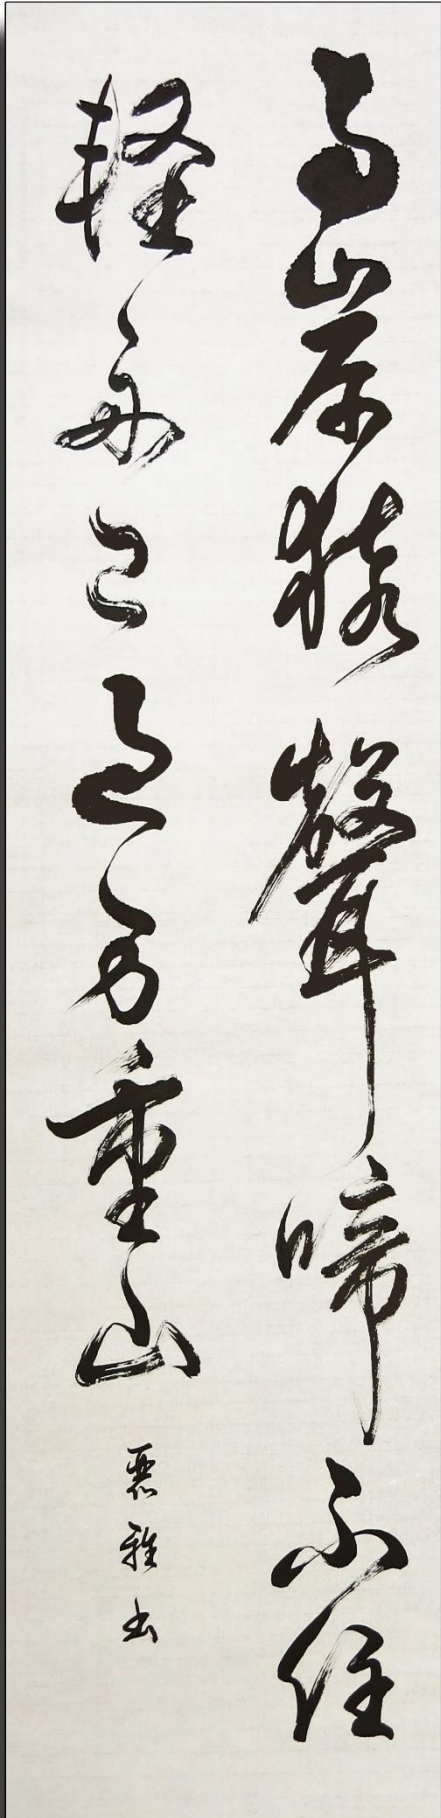 両岸猿聲啼不住
軽舟已過万重山
雅书